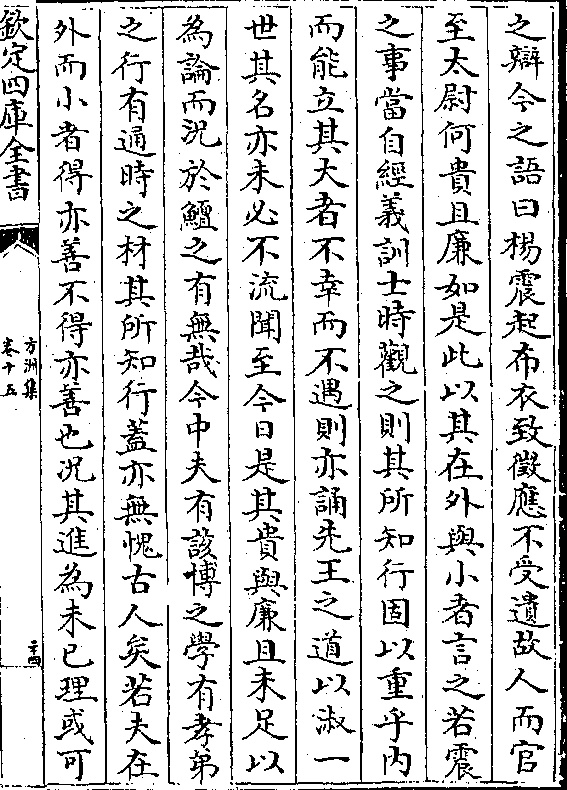 之辯今之語曰楊震起布衣致徵應不受遺故人而官
至太尉何貴且廉如是此以其在外與小者言之若震
之事當自經義訓士時觀之則其所知行固以重乎内
而能立其大者不幸而不遇則亦誦先王之道以淑一
世其名亦未必不流聞至今日是其貴與廉且未足以
為論而況於鱣之有無哉今中夫有該博之學有孝弟
之行有通時之材其所知行蓋亦無愧古人矣若夫在
外而小者得亦善不得亦善也况其進為未已理或可
欽定四庫全書
方洲集
卷十五
二十四